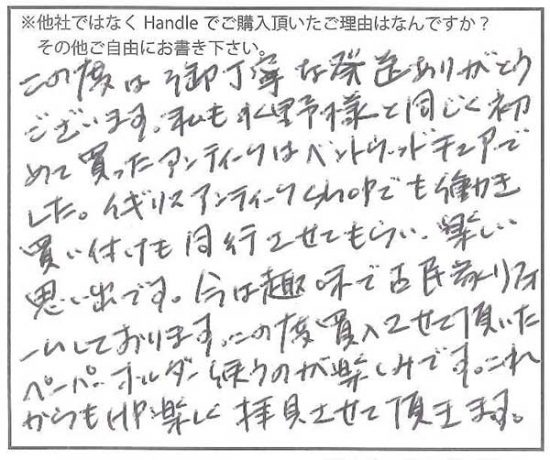 ※他社ではなく Handle でご購入頂いたご理由はなんですか？
その他ご自由にお書き下さい。
この度は御丁寧な発送ありがとう
ございます。私も水野様と同じく初
めて買ったアンティークはベントウッドチェアーで
した。イギリスアンティークshopでも働き
買い付けも同行させてもらい、楽しい
思い出です。今は趣味で古民家をリフォ
ームしております。この度買入させて頂いた
ペーパーホルダー使うのが楽しみです。これ
からもHP楽しく拝見させて頂きます。